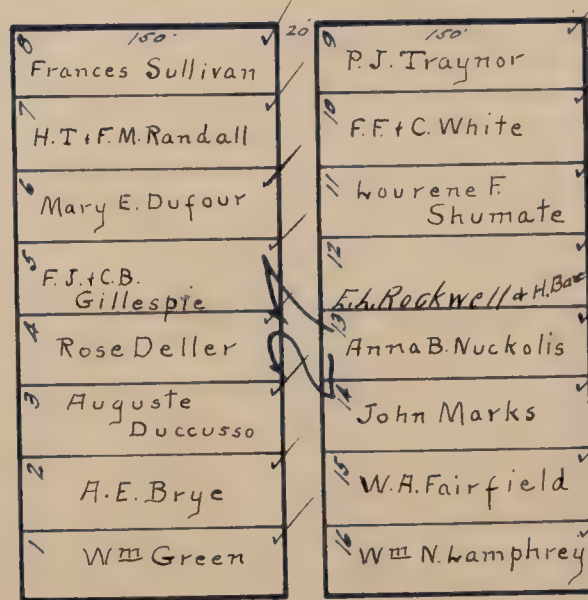 8
150'
Frances Sullivan
7
H.T & F.M. Randall
6
Mary E. Dufour
5
F.J. & C.B.
Gillespie
4
Rose Deller
3
Auguste
Duccusso
2
A.E. Brye
1
Wm Green
20'
9
150'
P.J. Traynor
10
F.F. & C. White
11
Lourene F.
Shumate
12
E.L. Rockwell & H.
13
Anna B. Nuckolis
14
John Marks
15
W.A. Fairfield
16
Wm N. Lamphrey